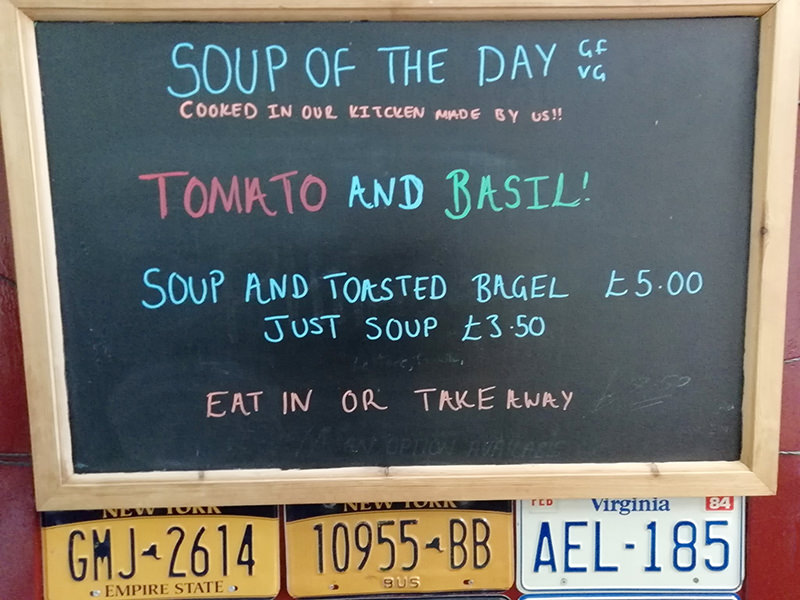 SOUP OF THE DAY GF VG
COOKED IN OUR KITCKEN MADE BY US!!
TOMATO AND BASIL!
SOUP AND TOASTED BAGEL £5.00
JUST SOUP £3.50
EAT IN OR TAKE AWAY
NEW YORK
GMJ-2614
EMPIRE STATE
NEW YORK
10955-BB
BUS
FEB Virginia 84
AEL-185